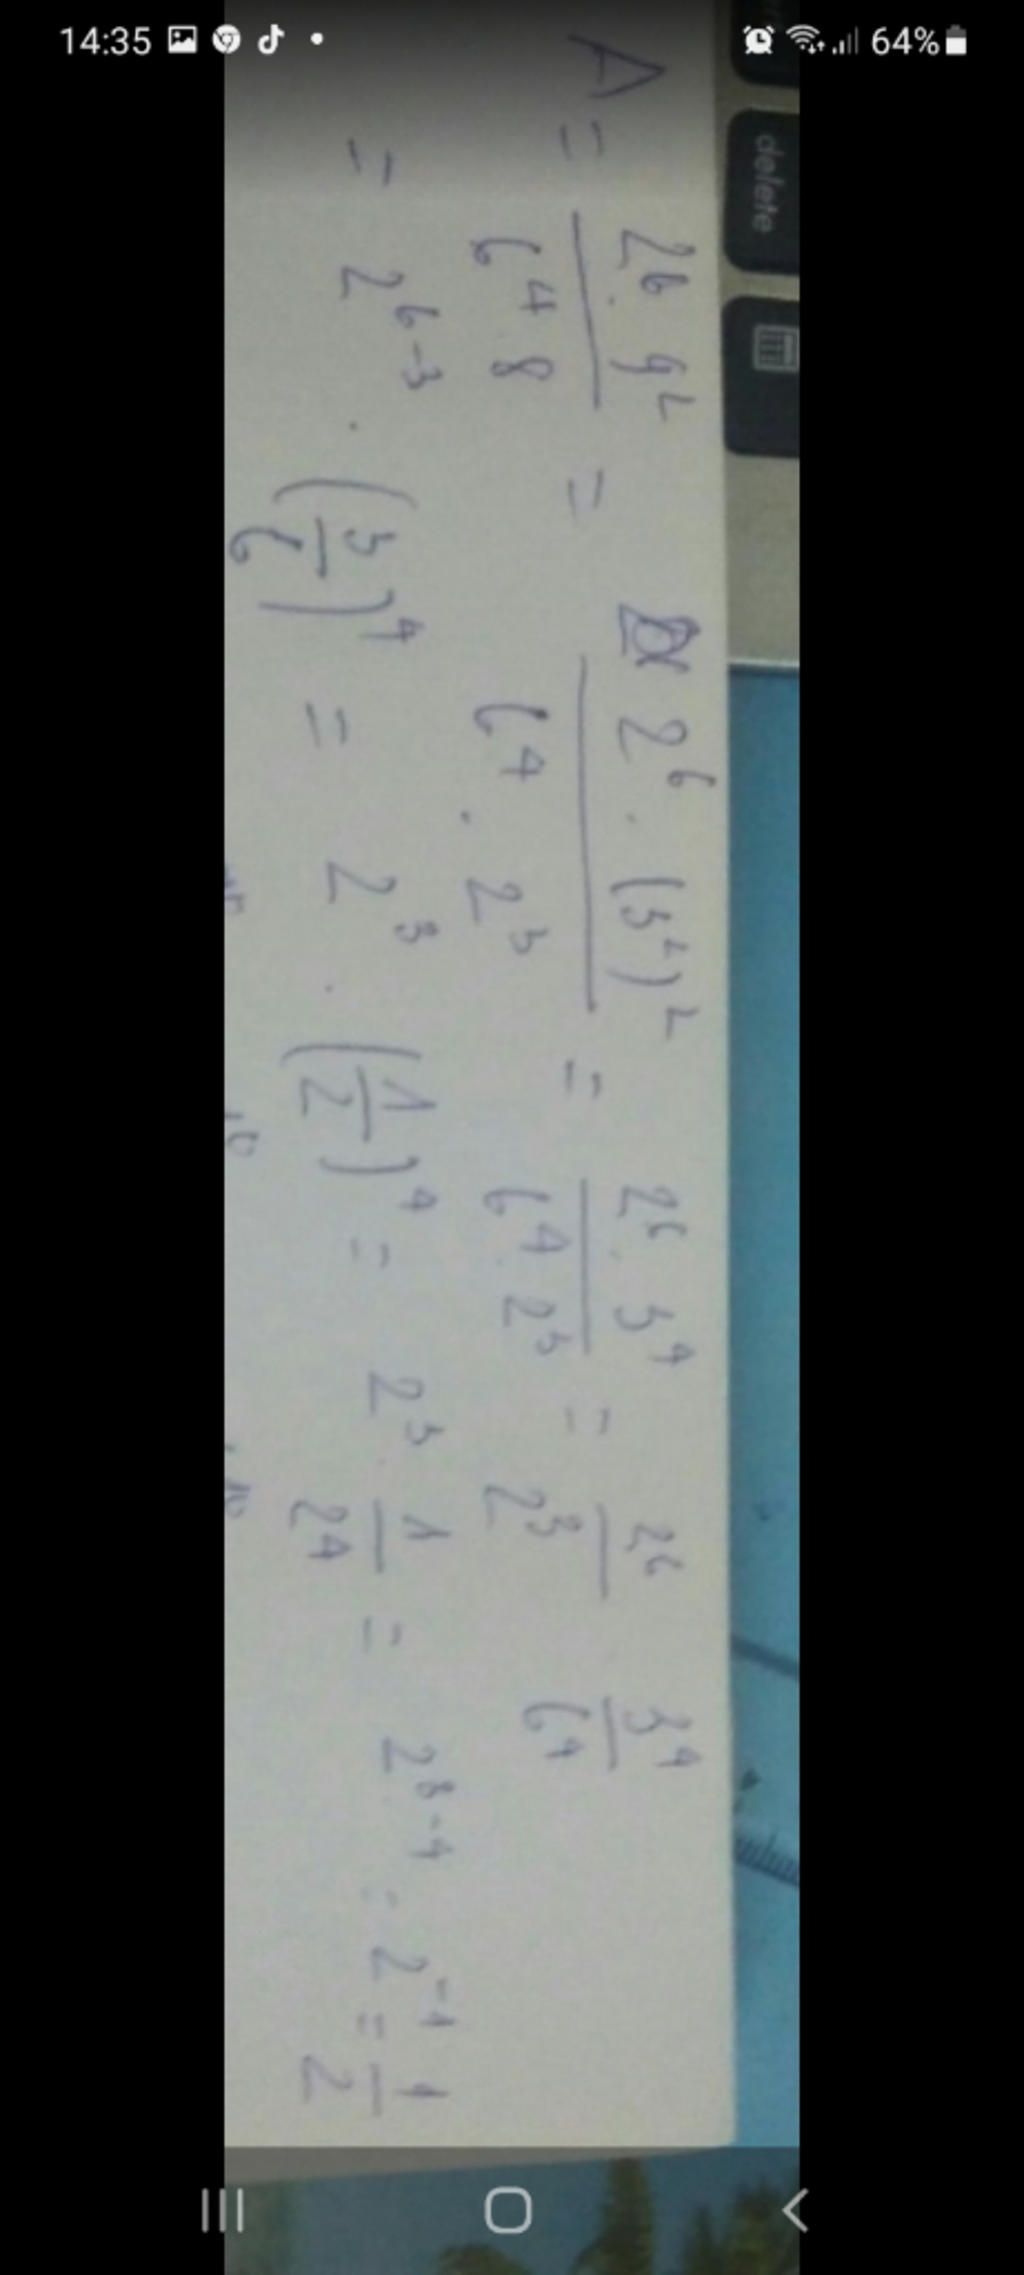 14:35
64%
delete
A = \frac{2^6 . 9^2}{6^4 8} = \frac{2^6 . (3^2)^2}{6^4 . 2^3} = \frac{2^6 . 3^4}{6^4 . 2^3} = \frac{2^6}{2^3} \frac{3^4}{6^4}
= 2^{6-3} . (\frac{3}{6})^4 = 2^3 . (\frac{1}{2})^4 = 2^3 . \frac{1}{2^4} = 2^{3-4} = 2^{-1} = \frac{1}{2}